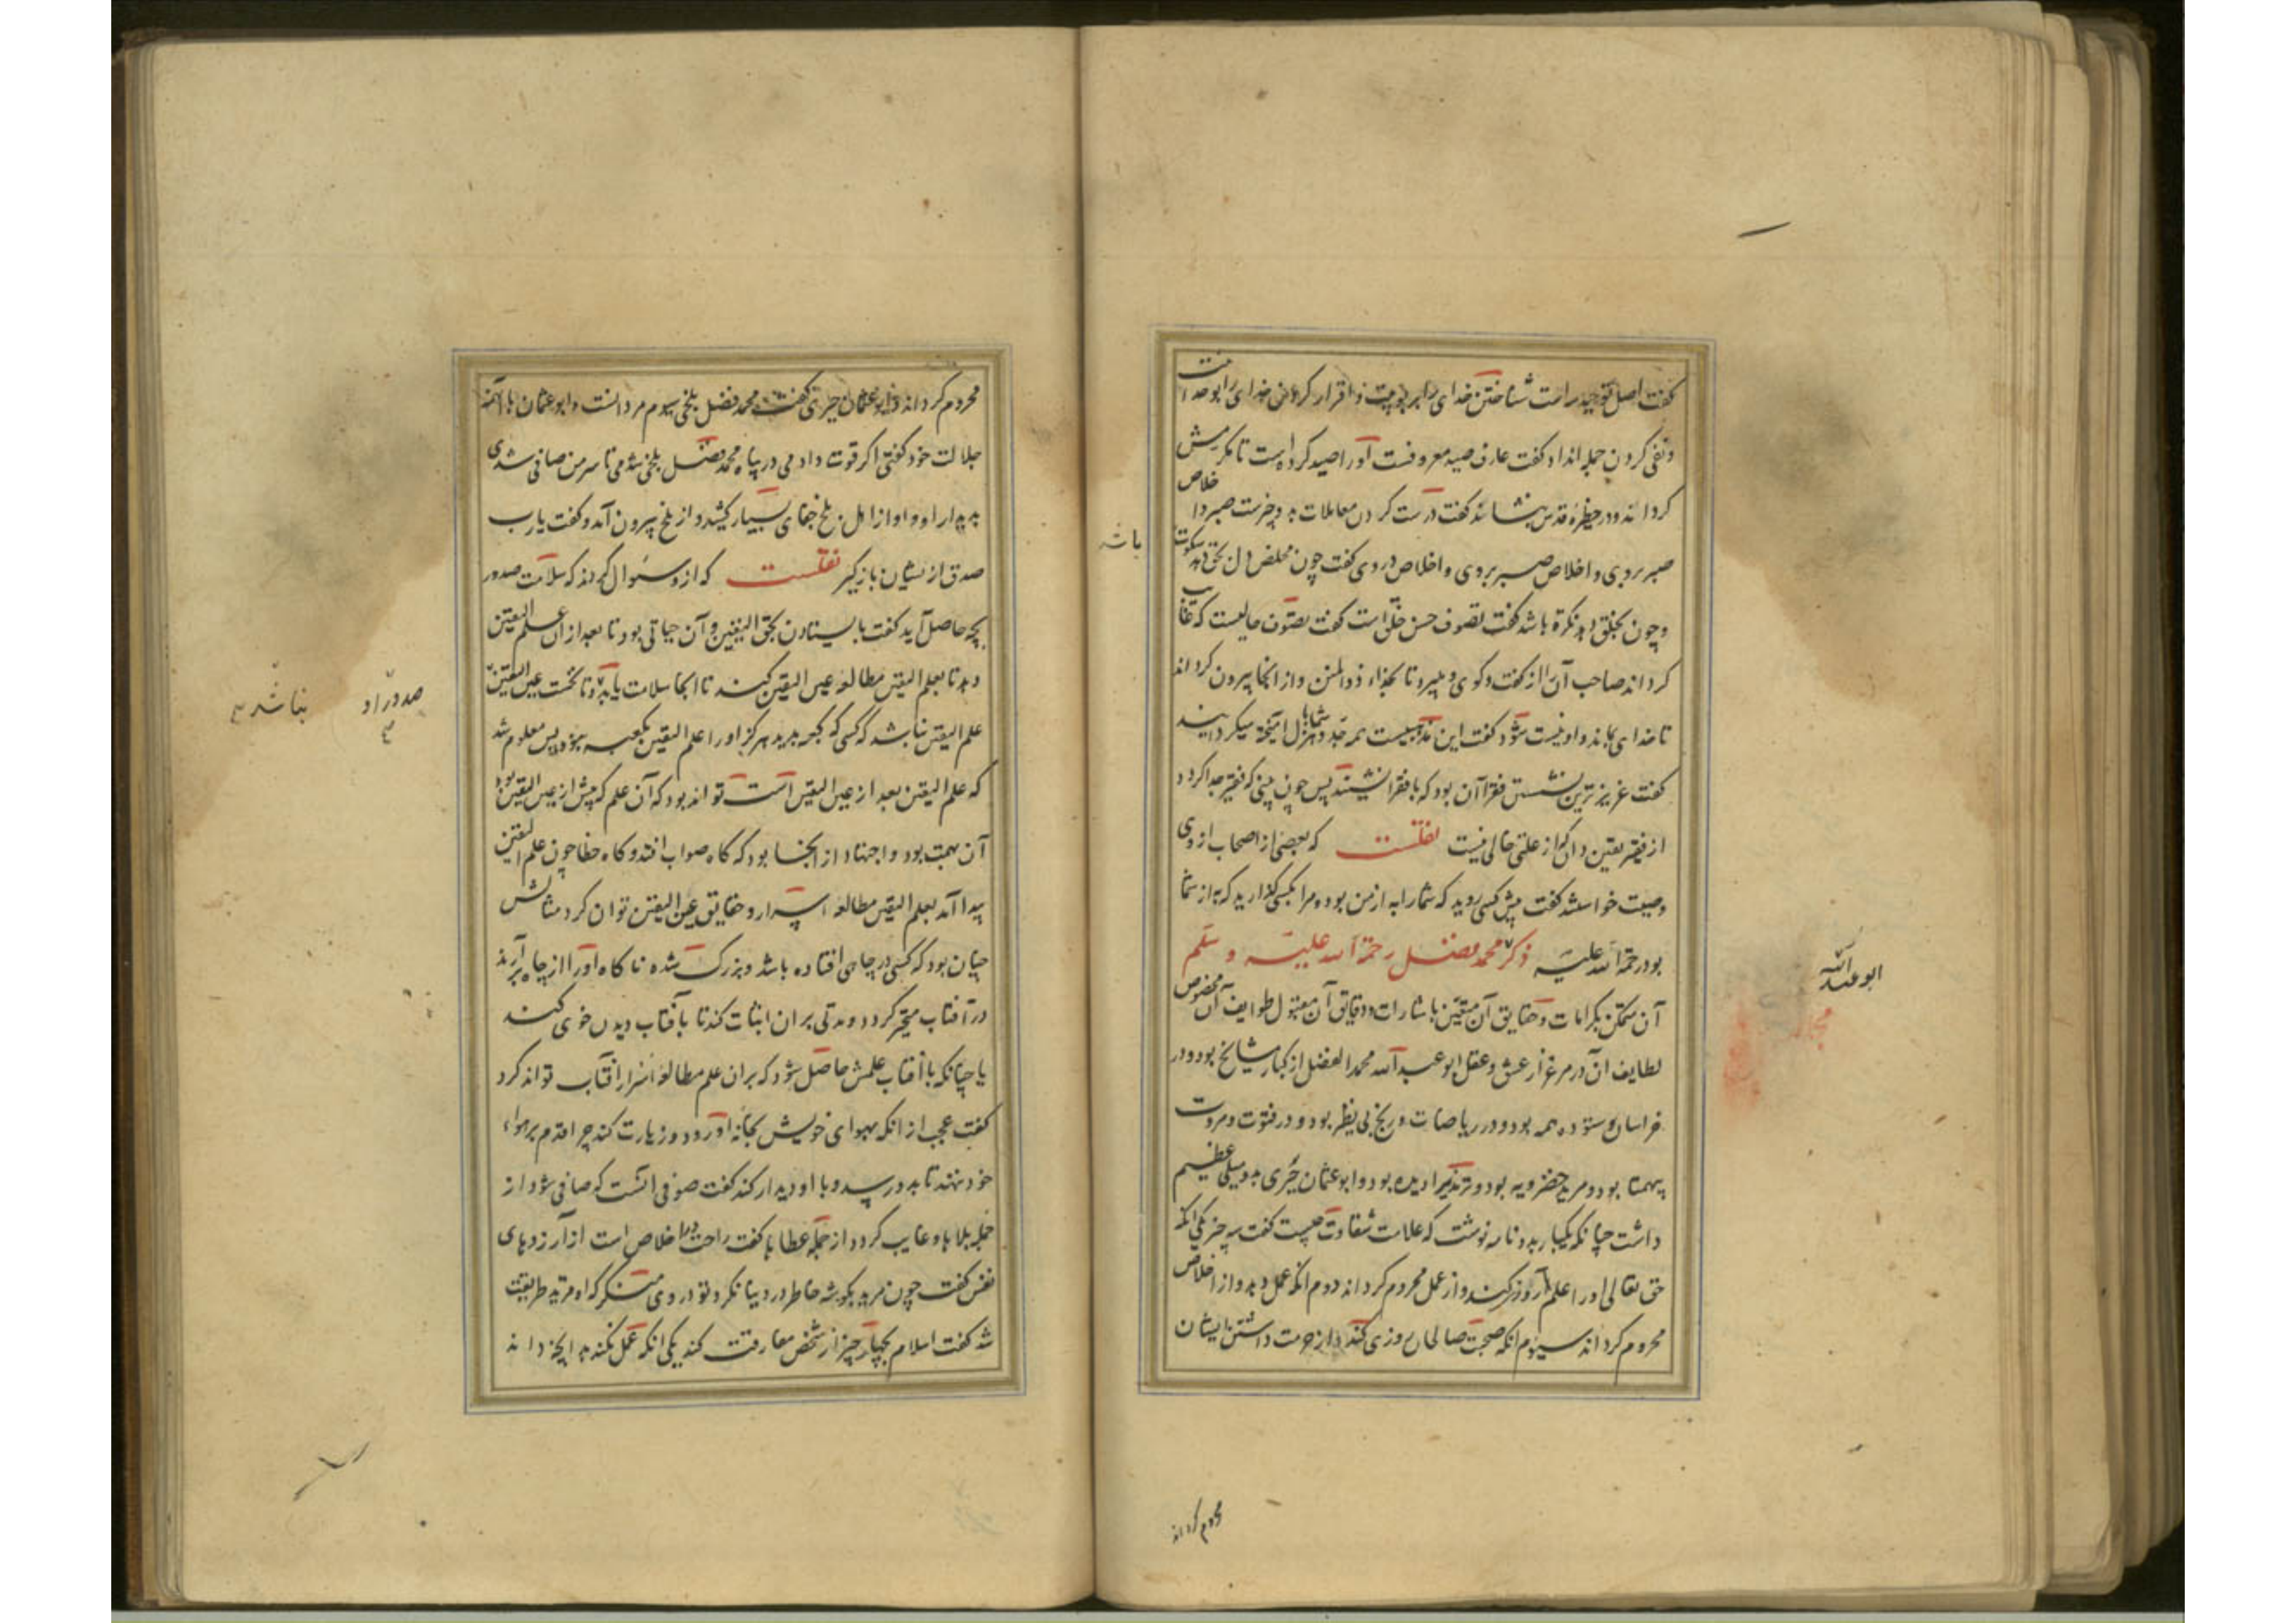 گفت اصل توحید راست شناختن خدای را بربوبیت و اقرار کردن خدای را بوحدانیت
و نفی کردن جمله انداد گفت عارف صید معروفست او را صید کرده است تا مکرمش
گرداند و در حظیرهٔ قدس بنشاند گفت درست کردن معاملات بدو چیزست صبر و اخلاص
صبر بروی و اخلاص صبر بروی و اخلاص در وی گفت چون مخلص دل بحق دهد سکوت
باشد
و چون بخلق دهد نکرة باشد گفت تصوف حسن خلق است گفت تصوف حالیست که غایب
گرداند صاحب آن را از گفت و گوی و میبرد تا بخدای ذوالمنن و از آنجا بیرون گرداند
تا خدای بماند و او نیست شود گفت این مذهبیست همه جد و شمابا هزل آمیخته میگردانید
گفت عزیزترین نشستن فقرا آن بود که با فقرا نشینند پس چون بینی که فقیر جدا گردد
از فقیر یقین دان که از علتی خالی نیست نقلست که بعضی از اصحاب از وی
وصیت خواستند گفت پیش کسی روید که شما را به از من بود و مرا بکسی گذارید که به از شما
بود رحمة الله علیه ذکر محمد فضل رحمة الله علیه و سلم
ابو عبدالله
آن متمکن بکرامات و حقایق آن متعین باشارات و دقایق آن مقبول طوایف آن مخصوص
لطایف آن در مرغزار عشق و عقل ابو عبد الله محمد الفضل از کبار مشایخ بود و در
خراسان ستوده همه بود و در ریاضات و رنج بی نظیر بود و در فتوت و مروت
بیهمتا بود و مرید خضرویه بود و ترمذی را دیده بود و ابو عثمان حیری بدو میلی عظیم
داشت چنانکه یکبار بدو نامه نوشت که علامت شقاوت چیست گفت سه چیز یکی آنکه
حق تعالی او را علم روزی کند و از عمل محروم گرداند دوم آنکه عمل دهد و از اخلاص
محروم گرداند سیوم آنکه صحبت صالحان روزی کند و از حرمت داشتن ایشان
محروم گرداند
محروم گرداند و ابو عثمان حیری گفت محمد فضل بلخی سیوم مردانست و ابو عثمان با آنهمه
جلالت خود گفتی اگر قوت دادمی در پناه محمد فضل بلخی شدمی تا سر من صافی شدی
بدیدار او و او از اهل بلخ جفای بسیار کشید و از بلخ بیرون آمد و گفت یارب
صدق از ایشان بازگیر نقلست که از و سئوال کردند که سلامت صدور
بچه حاصل آید گفت بایستادن بحق الیقین و آن حیاتی بود تا بعد از آن علم الیقین
دهد تا بعلم الیقین مطالعه عین الیقین کند تا انجا سلامت یابد و تا نخست عین الیقین
صدور او
نباشد
علم الیقین نباشد که کسی که کعبه ندید هرگز او را علم الیقین بکعبه نبود پس معلوم شد
که علم الیقین بعد از عین الیقین است تواند بود که آن علم که پیش از عین الیقین بود
آن بهمت بود و اجتهاد از انجا بود که گاه صواب افتد و گاه خطا چون علم الیقین
پیدا آمد بعلم الیقین مطالعه اسرار و حقایق عین الیقین توان کرد مثالش
چنان بود که کسی در چاهی افتاده باشد و بزرگ شده ناگاه او را از چاه برآرند
در آفتاب متحیر گردد و مدتی بران اثبات کند تا بآفتاب دیدن خوی کند
یا چنانکه بآفتاب علمش حاصل شود که بران علم مطالعه اسرار آفتاب تواند کرد
گفت عجب از آنکه بهوای خویش بخانه او رود و زیارت کند چرا قدم بر هواء
خود ننهد تا بدو رسد و با او دیدار کند گفت صوفی آنست که صافی شود از
جمله بلاها و غایب گردد از جمله عطاها گفت راحت در اخلاص است از آرزوهای
نفس گفت چون مرید بگوشه خاطر در دنیا نگرد تو در وی منگر که او مرتد طریقت
شد گفت اسلام بچهار چیز از شخص مفارقت کند یکی آنکه عمل نکند بدانچه داند